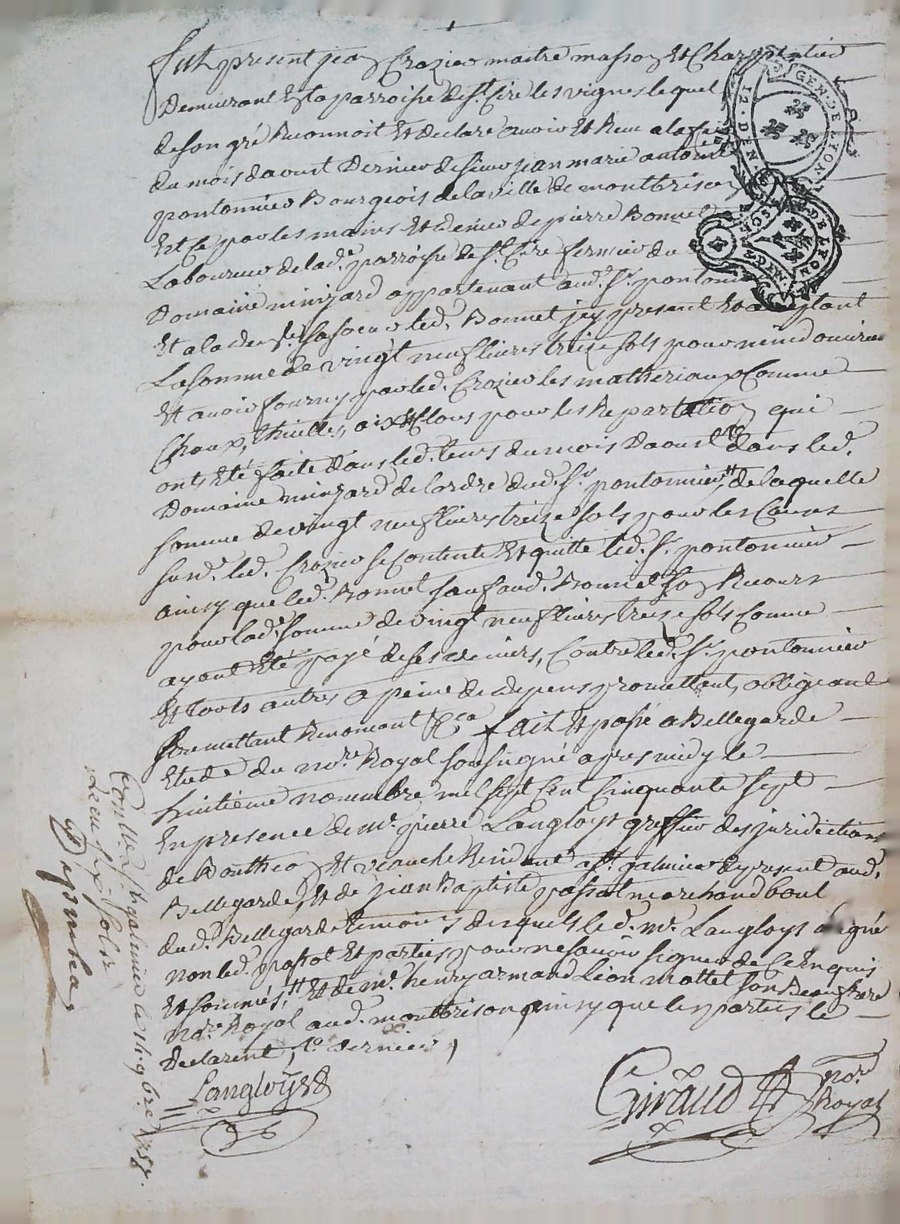 fut present jean Crozier maitre masson Et Charpentier
Demeurant En la parroisse de st. Cire les vignes lequel
de son gré Reconnoit Et declare avoir Et Reçu a la fin
du mois daoust Dernier de sieur jean marie antoine
pontonnier Bourgeois de la ville de montbrison
Et Ce par les mains Et deniers de pierre Bonnet
Laboureur de lade. parroisse de st. Cire fermier du
Domaine minjard appartenant aud. sr. pontonnier
Et a la de. sa soeur led. Bonnet jcy present Et acceptant
La somme de vingt neuf livres treize sols pour
Et avoir fourny par led. Crozier les matheriaux Comme
Chaux, thuilles, aix Et Clous pour les Repartation qui
ont Eté faite dans led. tems du mois Daoust dans led.
Domaine minjard de lordre dud. sr. pontonnier, de laquelle
somme de vingt neuf livres treize sols pour les Causes
susd. led. Crozier se Contente Et quitte led. sr. pontonnier
ainsy que led. Bonnet sauf aud. Bonnet son Recours
pour lade. somme de vingt neuf livres treize sols Comme
ayant Eté payé de ses deniers, Contre led. sr. pontonnier
Et touts autres a peine de depens promettant, obligeant
soumettant Renonçant &ca fait Et passé a Bellegarde
Etude du nore. Royal soussigné apres midy le
huitième novembre mil sept cen Cinquante sept
En presence de me. pierre Langloys greffier des juridictions
de Bouthéon Et veauche Residant a st. galmier de present aud.
Bellegarde, Et de jean Baptiste passot marchand
dud. Bellegarde temoins desquels led. me. Langloys a signé
non led. passot Et parties pour ne savoir signer de Ce Enquis
Et sommés, Et de me. henry armand Léon mottet son Beaufrere
nore. Royal aud. montbrison ainsy que les parties le
Declarent, Ce dernier
Langloys
Giraud nore. Royal
Conllé a st galmier le 14. 9bre. 1757.
Reçu six sols
GEN. DE LYON
DEN.
GEN. DE LYON